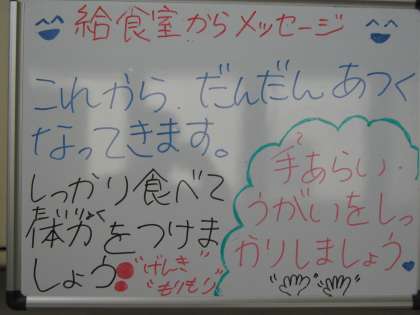 給食室からメッセージ
これから、だんだんあつく
なってきます。
しっかり食べて
たいりょく
体力をつけま
しょう!
"げんき"
"もりもり"
て
手あらい・
うがいをしっ
かりしましょう。